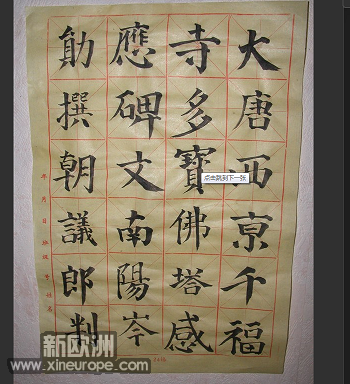 大唐西亰千福
寺多寶佛塔感
應碑文南陽岑
勛撰朝議郎判
年 月 日
点击跳到下一张
新欧洲
www.xineurope.com